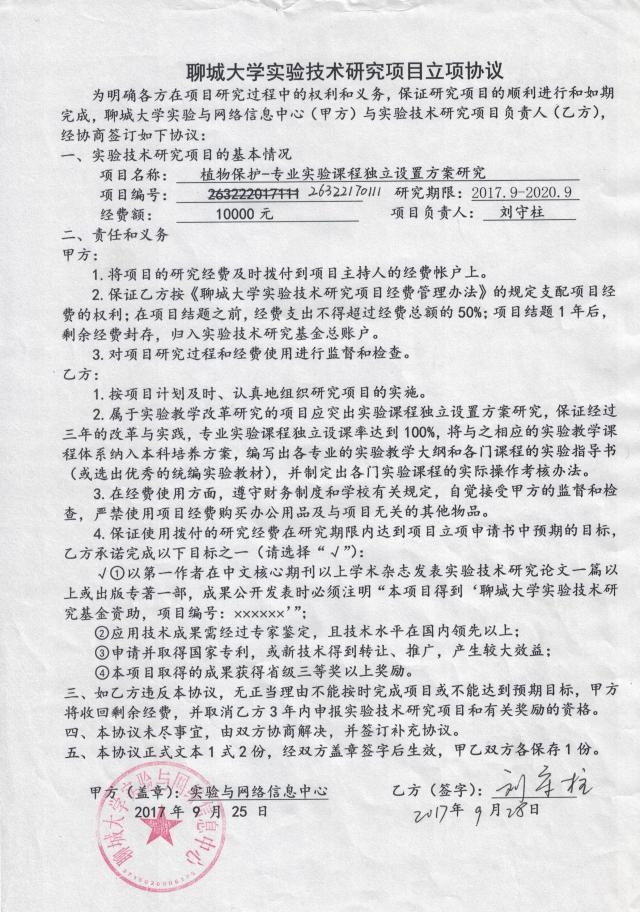 聊城大学实验技术研究项目立项协议
为明确各方在项目研究过程中的权利和义务，保证研究项目的顺利进行和如期
完成，聊城大学实验与网络信息中心（甲方）与实验技术研究项目负责人（乙方），
经协商签订如下协议：
一、实验技术研究项目的基本情况
项目名称： 植物保护-专业实验课程独立设置方案研究
项目编号： 263222017111 26322170111 研究期限：2017.9-2020.9
经费额： 10000 元 项目负责人： 刘守柱
二、责任和义务
甲方：
1.将项目的研究经费及时拨付到项目主持人的经费帐户上。
2.保证乙方按《聊城大学实验技术研究项目经费管理办法》的规定支配项目经
费的权利；在项目结题之前，经费支出不得超过经费总额的50%；项目结题1年后，
剩余经费封存，归入实验技术研究基金总账户。
3.对项目研究过程和经费使用进行监督和检查。
乙方：
1.按项目计划及时、认真地组织研究项目的实施。
2.属于实验教学改革研究的项目应突出实验课程独立设置方案研究，保证经过
三年的改革与实践，专业实验课程独立设课率达到100%，将与之相应的实验教学课
程体系纳入本科培养方案，编写出各专业的实验教学大纲和各门课程的实验指导书
（或选出优秀的统编实验教材），并制定出各门实验课程的实际操作考核办法。
3.在经费使用方面，遵守财务制度和学校有关规定，自觉接受甲方的监督和检
查，严禁使用项目经费购买办公用品及与项目无关的其他物品。
4.保证使用拨付的研究经费在研究期限内达到项目立项申请书中预期的目标，
乙方承诺完成以下目标之一（请选择“√”）：
√①以第一作者在中文核心期刊以上学术杂志发表实验技术研究论文一篇以
上或出版专著一部，成果公开发表时必须注明“本项目得到‘聊城大学实验技术研
究基金资助，项目编号：××××××’”；
②应用技术成果需经过专家鉴定，且技术水平在国内领先以上；
③申请并取得国家专利，或新技术得到转让、推广，产生较大效益；
④本项目取得的成果获得省级三等奖以上奖励。
三、如乙方违反本协议，无正当理由不能按时完成项目或不能达到预期目标，甲方
将收回剩余经费，并取消乙方3年内申报实验技术研究项目和有关奖励的资格。
四、本协议未尽事宜，由双方协商解决，并签订补充协议。
五、本协议正式文本1式2份，经双方盖章签字后生效，甲乙双方各保存1份。
甲方（盖章）：实验与网络信息中心 乙方（签字）：刘守柱
2017年 9 月 25 日 2017年 9月28日
聊城大学实验与网络信息中心